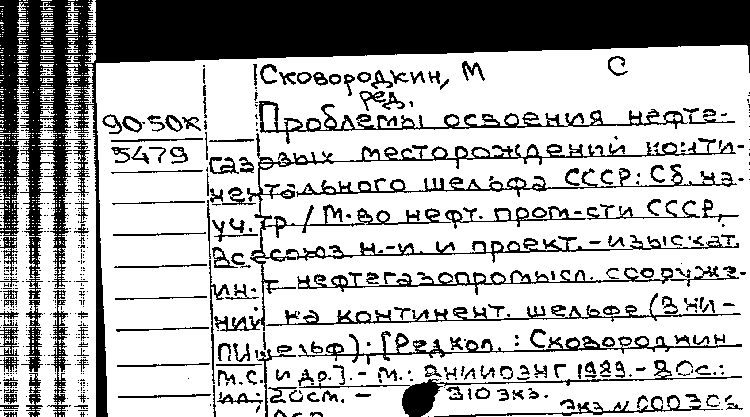 Сковородкин, М С
ред.
90-50к Проблемы освоения нефте-
5479 газовых месторождений конти-
нентального шельфа СССР: Сб. на-
уч. тр / М-во нефт. пром-сти СССР,
Всесоюз н.-и. и проект.-изыскат.
ин-т нефтегазопромысл. сооруже-
ний на континент. шельфе (ВНИ-
ПИшельф); [Редкол. : Сковороднин
М.С. и др.]. - М.: ВНИИОЭНГ, 1989. - 80с.:
ил; 20см. - 310 экз.
Экз N 0003